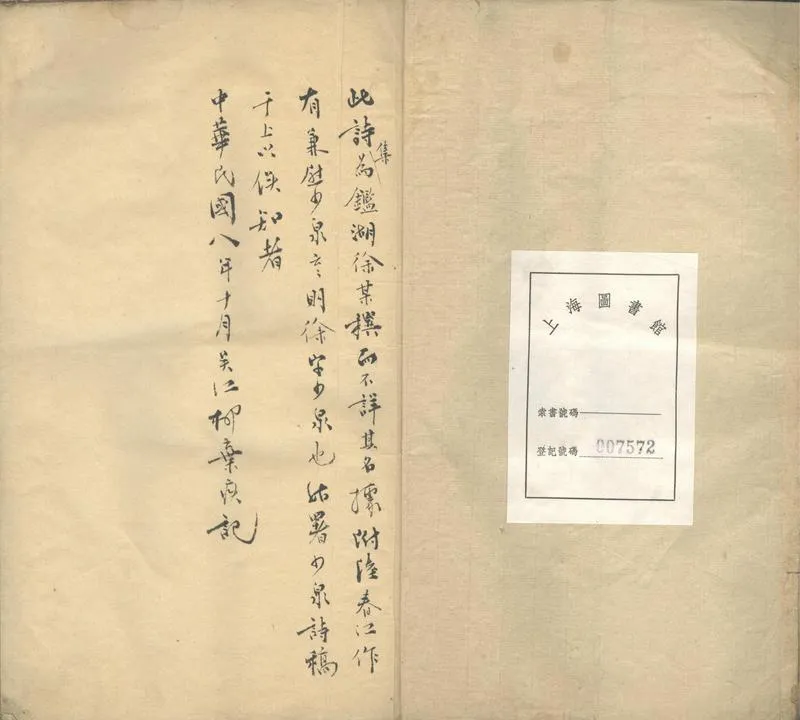 上海圖書館
索書號碼
登記號碼 007572
此詩集為鑑湖徐某撰而不詳其名據附陸春江作
有兼慰少泉云〻明徐字少泉也姑署少泉詩稿
于上以俟知者
中華民國八年十月吳江柳棄疾記